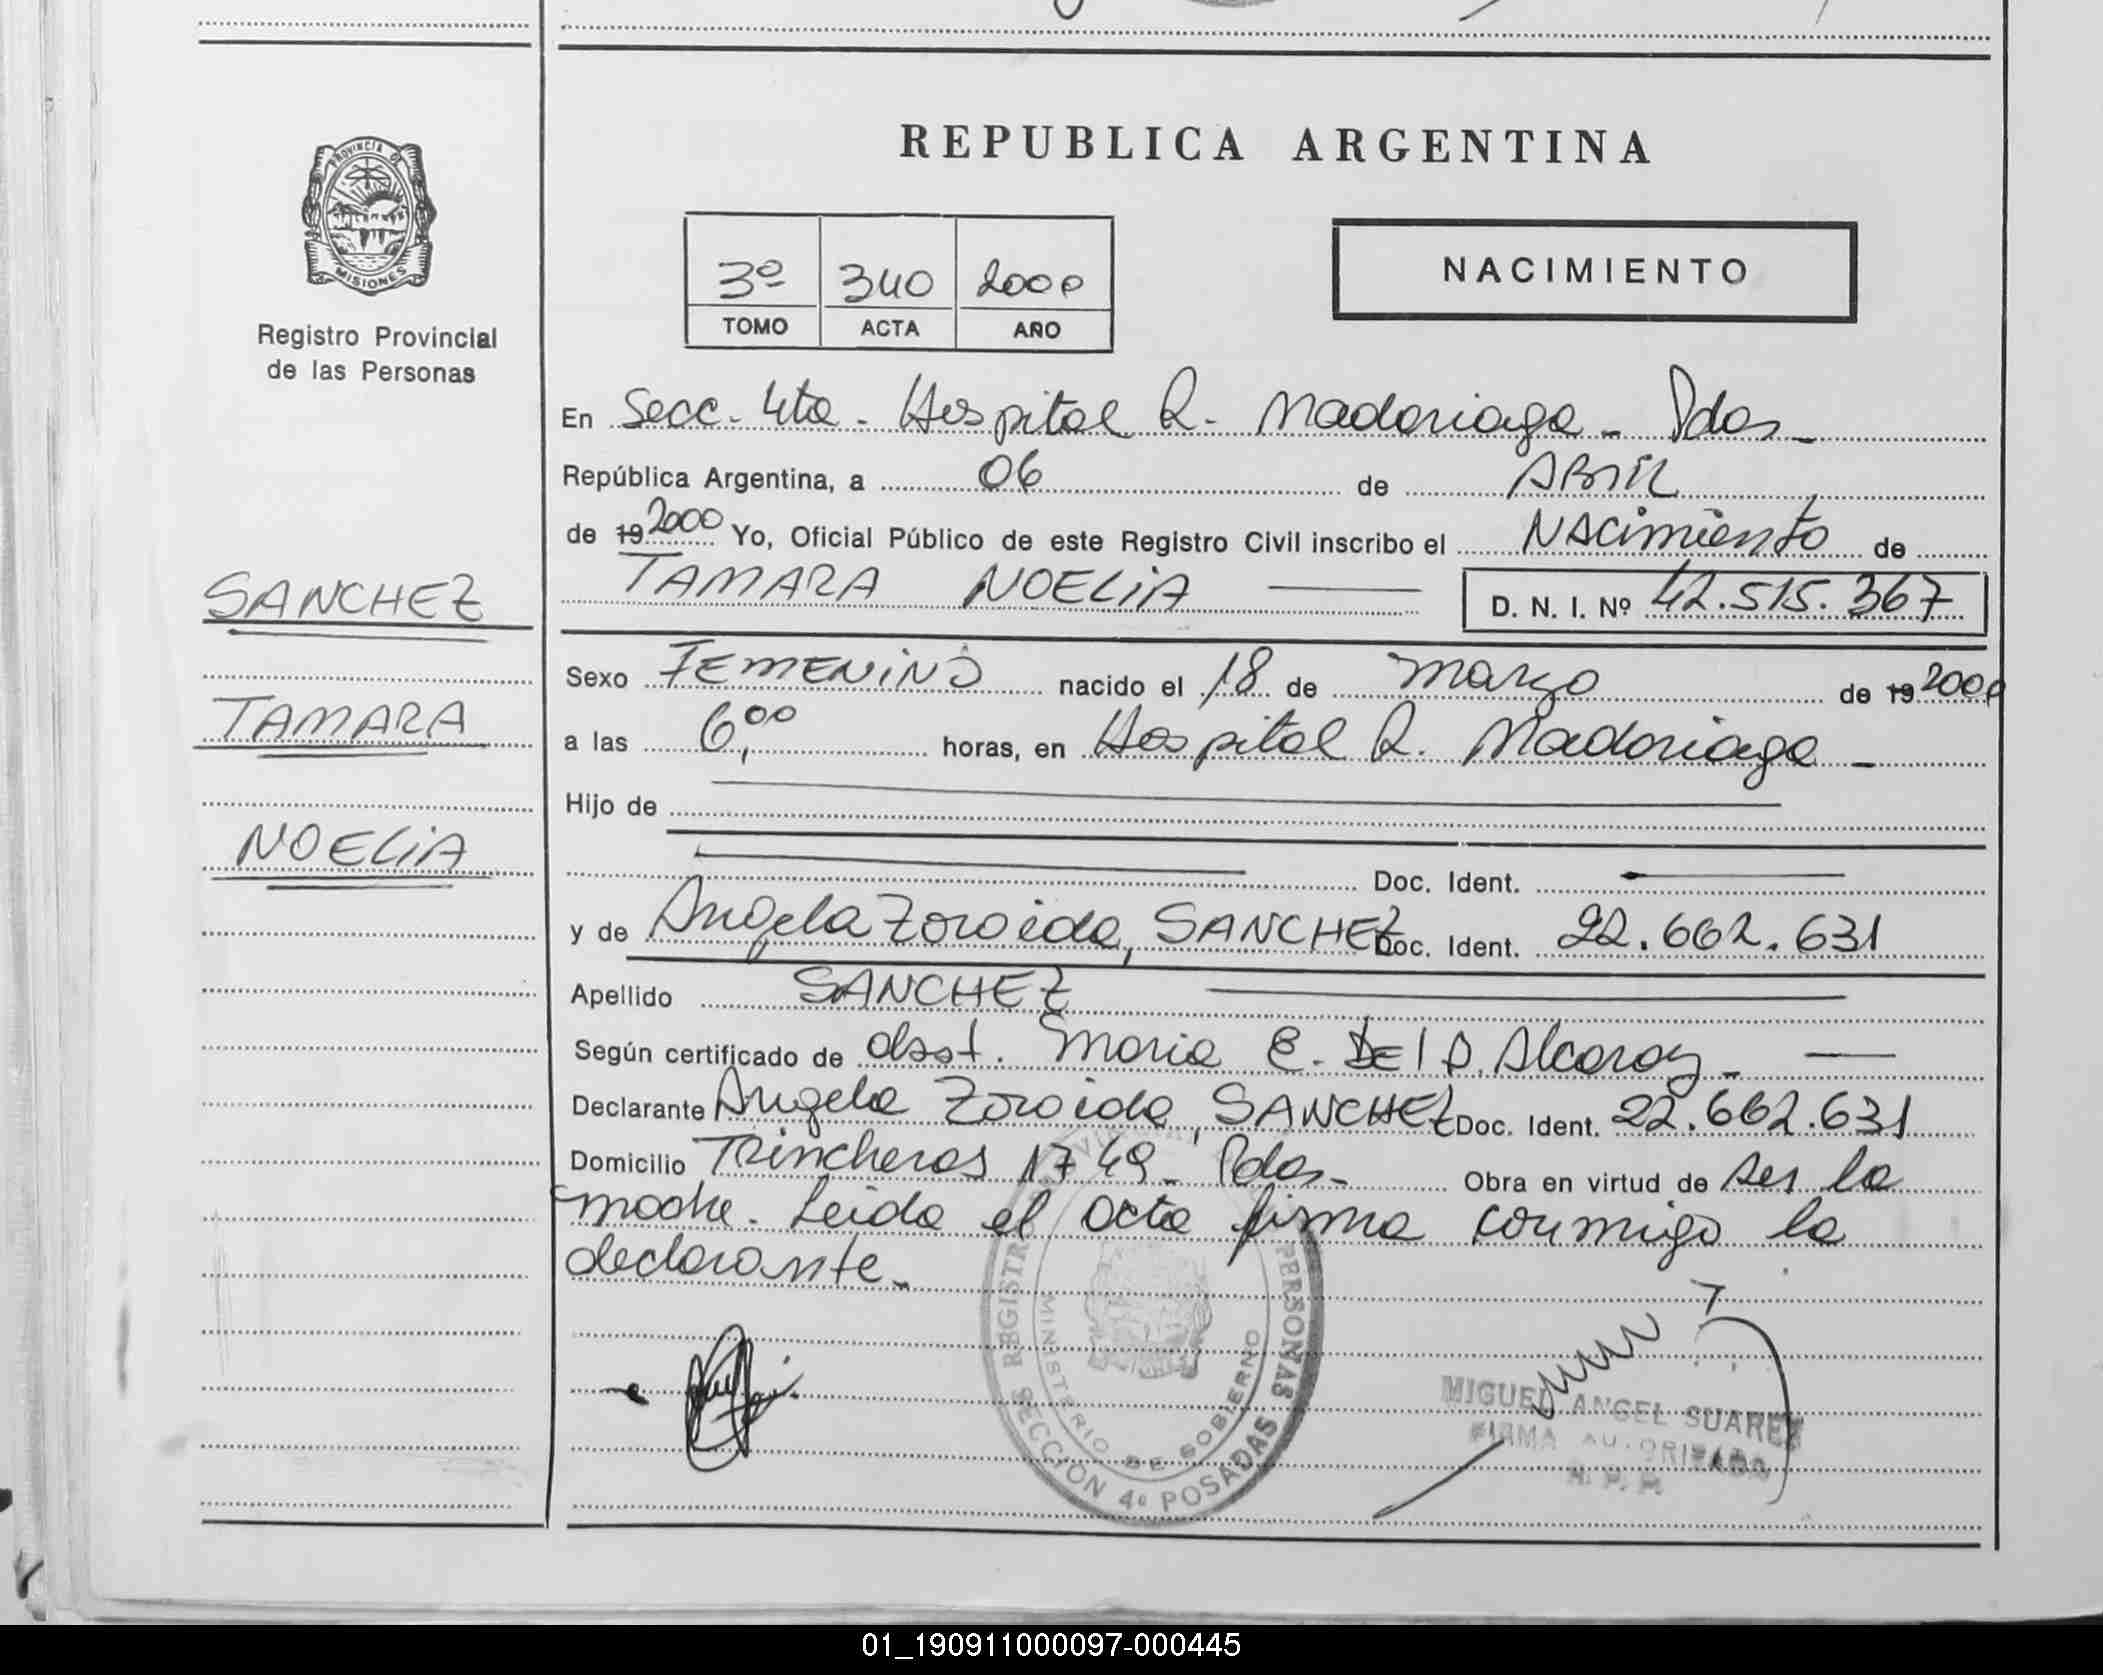 REPUBLICA ARGENTINA
PROVINCIA DE
MISIONES
Registro Provincial
de las Personas
3º 340 2000
TOMO ACTA AÑO
NACIMIENTO
En Secc. 4ta. Hospital R. Madariaga - Pdas -
República Argentina, a 06 de ABRIL
de 19 2000 Yo, Oficial Público de este Registro Civil inscribo el NACimiento de
TAMARA NOELiA D. N. I. Nº 42.515.367
SANCHEZ
TAMARA
NOELiA
Sexo FEMENiNO nacido el 18 de marzo de 19 2000
a las 6,00 horas, en Hospital R. Madariaga -
Hijo de
Doc. Ident.
y de Angela Zoraida, SANCHEZ Doc. Ident. 22.662.631
Apellido SANCHEZ
Según certificado de obst. Maria E. DEl P. Alcaraz -
Declarante Angela Zoraida, SANCHEZ Doc. Ident. 22.662.631
Domicilio Trincheras 1749 - Pdas - Obra en virtud de ser la
madre. Leida el acta firma conmigo la
declarante -
REGISTRO PERSONAS
MINISTERIO DE GOBIERNO
SECCION 4ª POSADAS
MIGUEL ANGEL SUAREZ
FIRMA AUTORIZADA
R. P. P.
01_190911000097-000445